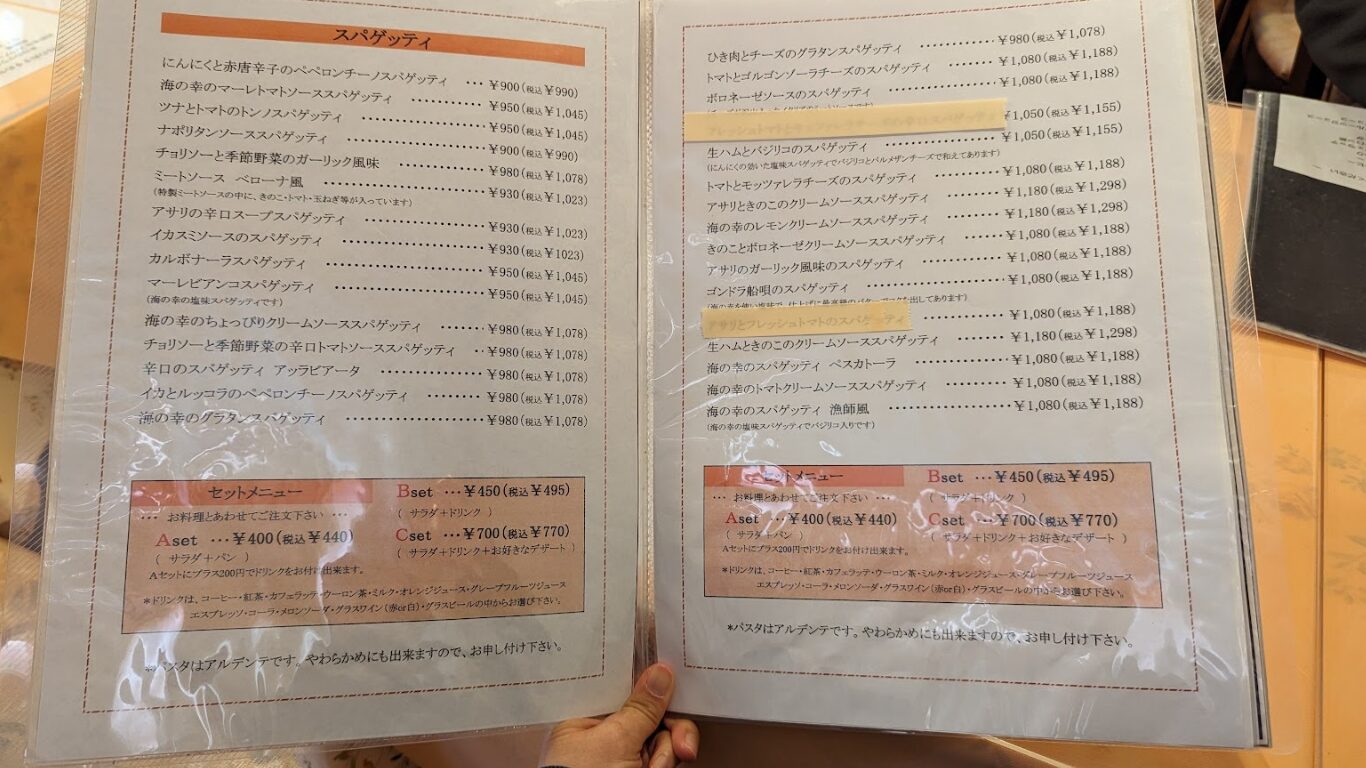 スパゲッティ
にんにくと赤唐辛子のペペロンチーノスパゲッティ ・・・￥900(税込￥990)
海の幸のマーレトマトソーススパゲッティ ・・・・・・・・・・￥950(税込￥1,045)
ツナとトマトのトンノスパゲッティ ・・・・・・・・・・・・・・・・￥950(税込￥1,045)
ナポリタンソーススパゲッティ ・・・・・・・・・・・・・・・・・・￥900(税込￥990)
チョリソーと季節野菜のガーリック風味 ・・・・・・・・・・・・￥980(税込￥1,078)
ミートソース ベローナ風 ・・・・・・・・・・・・・・・・・・・・￥930(税込￥1,023)
(特製ミートソースの中に、きのこ・トマト・玉ねぎ等が入っています)
アサリの辛口スープスパゲッティ ・・・・・・・・・・・・・・￥930(税込￥1,023)
イカスミソースのスパゲッティ ・・・・・・・・・・・・・・・・・￥930(税込￥1023)
カルボナーラスパゲッティ ・・・・・・・・・・・・・・・・・・・￥950(税込￥1,045)
マーレビアンコスパゲッティ ・・・・・・・・・・・・・・・・・・￥950(税込￥1,045)
(海の幸の塩味スパゲッティです)
海の幸のちょっぴりクリームソーススパゲッティ ・・・・・・￥980(税込￥1,078)
チョリソーと季節野菜の辛口トマトソーススパゲッティ ・・￥980(税込￥1,078)
辛口のスパゲッティ アッラビアータ ・・・・・・・・・・・・・￥980(税込￥1,078)
イカとルッコラのペペロンチーノスパゲッティ ・・・・・・・・￥980(税込￥1,078)
海の幸のグラタンスパゲッティ ・・・・・・・・・・・・・・・・・￥980(税込￥1,078)
セットメニュー
･･･ お料理とあわせてご注文下さい ･･･
Aset ･･･￥400(税込￥440)
( サラダ＋パン )
Aセットにプラス200円でドリンクをお付け出来ます。
Bset ･･･￥450(税込￥495)
( サラダ＋ドリンク )
Cset ･･･￥700(税込￥770)
( サラダ＋ドリンク＋お好きなデザート )
*ドリンクは、コーヒー・紅茶・カフェラッテ・ウーロン茶・ミルク・オレンジジュース・グレープフルーツジュース
エスプレッソ・コーラ・メロンソーダ・グラスワイン(赤or白)・グラスビールの中からお選び下さい。
*パスタはアルデンテです。やわらかめにも出来ますので、お申し付け下さい。
ひき肉とチーズのグラタンスパゲッティ ・・・・・・・・・・・・￥980(税込￥1,078)
トマトとゴルゴンゾーラチーズのスパゲッティ ・・・・・・・￥1,080(税込￥1,188)
ボロネーゼソースのスパゲッティ ・・・・・・・・・・・・・・・￥1,080(税込￥1,188)
￥1,050(税込￥1,155)
生ハムとバジリコのスパゲッティ ・・・・・・・・・・・・・・・・￥1,050(税込￥1,155)
(にんにくの効いた塩味スパゲッティでバジリコとパルメザンチーズで和えてあります)
トマトとモッツァレラチーズのスパゲッティ ・・・・・・・・・￥1,080(税込￥1,188)
アサリときのこのクリームソーススパゲッティ ・・・・・・・・￥1,180(税込￥1,298)
海の幸のレモンクリームソーススパゲッティ ・・・・・・・・・￥1,180(税込￥1,298)
きのことボロネーゼクリームソーススパゲッティ ・・・・・・￥1,080(税込￥1,188)
アサリのガーリック風味のスパゲッティ ・・・・・・・・・・・￥1,080(税込￥1,188)
ゴンドラ船唄のスパゲッティ ・・・・・・・・・・・・・・・・・￥1,080(税込￥1,188)
アサリとフレッシュトマトのスパゲッティ ・・・・・・・・・・￥1,080(税込￥1,188)
生ハムときのこのクリームソーススパゲッティ ・・・・・・・￥1,180(税込￥1,298)
海の幸のスパゲッティ ペスカトーラ ・・・・・・・・・・・・￥1,080(税込￥1,188)
海の幸のトマトクリームソーススパゲッティ ・・・・・・・・・￥1,080(税込￥1,188)
海の幸のスパゲッティ 漁師風 ・・・・・・・・・・・・・・・・・￥1,080(税込￥1,188)
(海の幸の塩味スパゲッティでバジリコ入りです)
セットメニュー
･･･ お料理とあわせてご注文下さい ･･･
Aset ･･･￥400(税込￥440)
( サラダ＋パン )
Aセットにプラス200円でドリンクをお付け出来ます。
Bset ･･･￥450(税込￥495)
( サラダ＋ドリンク )
Cset ･･･￥700(税込￥770)
( サラダ＋ドリンク＋お好きなデザート )
*ドリンクは、コーヒー・紅茶・カフェラッテ・ウーロン茶・ミルク・オレンジジュース・グレープフルーツジュース
エスプレッソ・コーラ・メロンソーダ・グラスワイン(赤or白)・グラスビールの中からお選び下さい。
*パスタはアルデンテです。やわらかめにも出来ますので、お申し付け下さい。